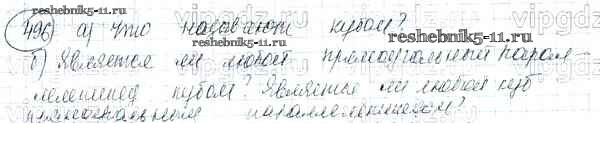 reshebnik5-11.ru
496 а) Что называют кубом?
reshebnik5-11.ru
б) Является ли любой прямоугольный парал-
лелепипед кубом? Является ли любой куб
прямоугольным параллелепипедом?
reshebnik5-11.ru